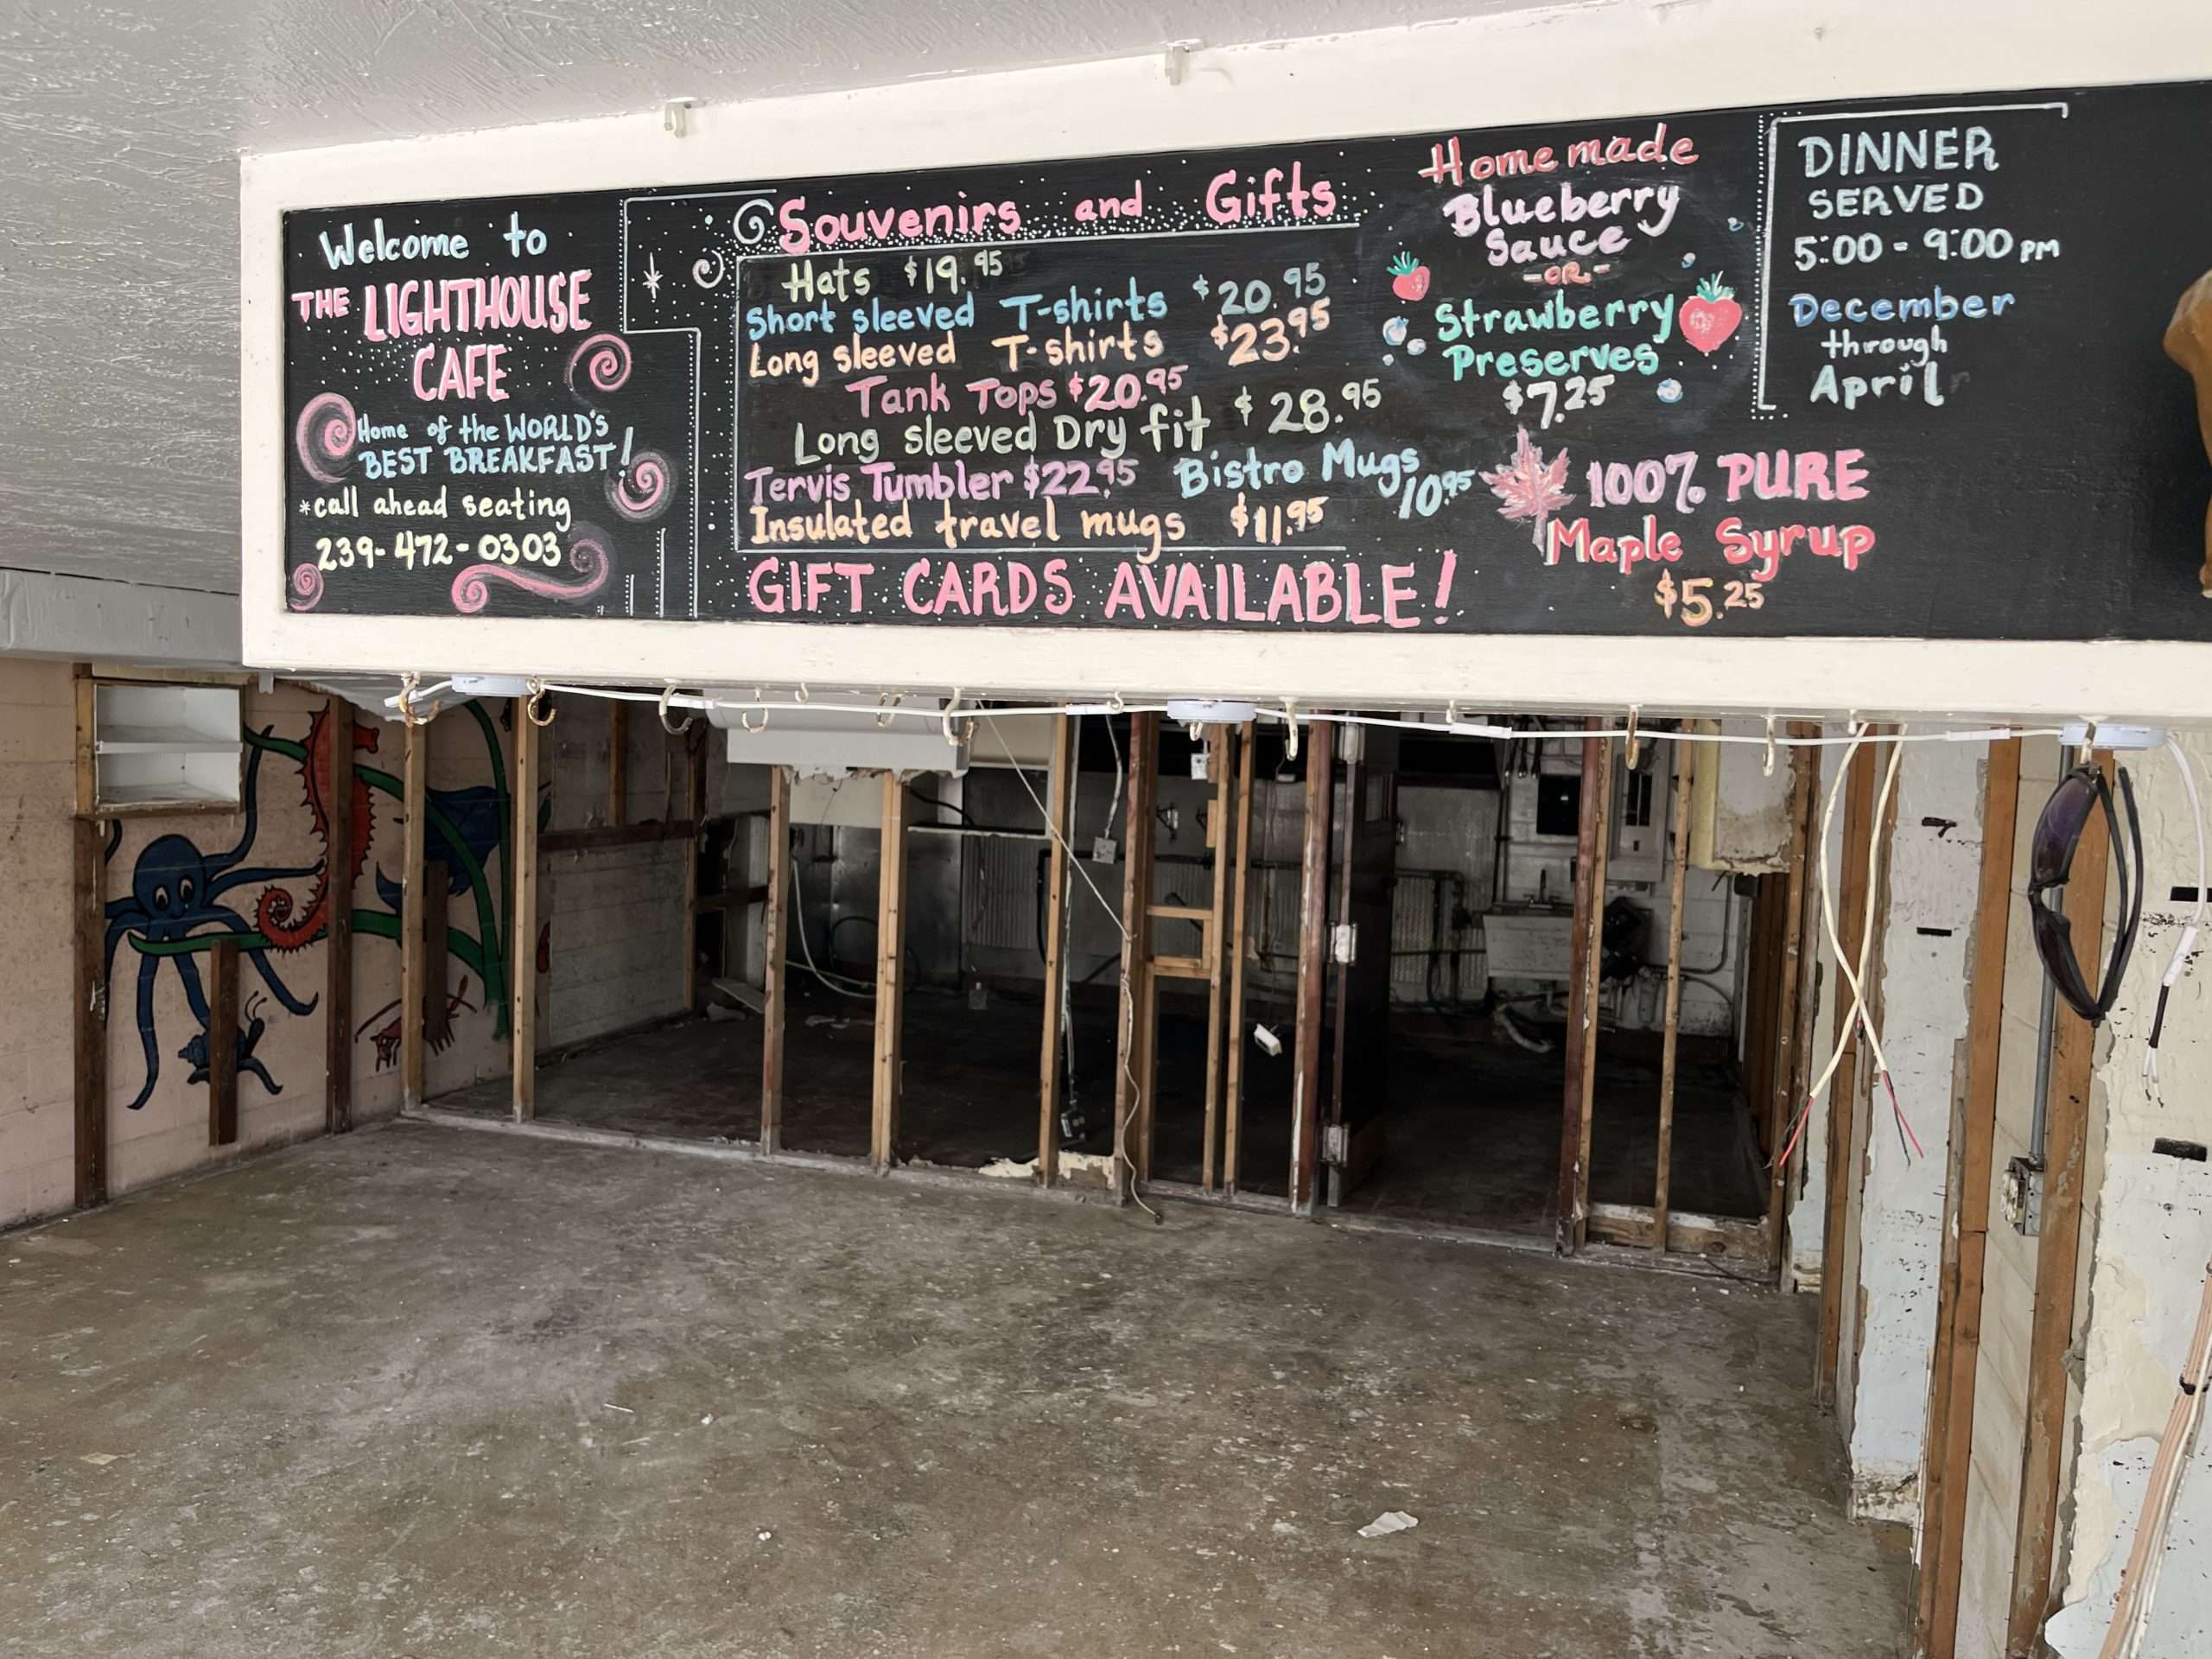 Welcome to
THE LIGHTHOUSE
CAFE
Home of the WORLD'S
BEST BREAKFAST!
*call ahead seating
239-472-0303
Souvenirs and Gifts
Hats $19.95
Short sleeved T-shirts $20.95
Long sleeved T-shirts $23.95
Tank Tops $20.95
Long sleeved Dry fit $28.95
Tervis Tumbler $22.95 Bistro Mugs 10.95
Insulated travel mugs $11.95
GIFT CARDS AVAILABLE!
Homemade
Blueberry
Sauce
-OR-
Strawberry
Preserves
$7.25
100% PURE
Maple Syrup
$5.25
DINNER
SERVED
5:00 - 9:00 PM
December
through
April